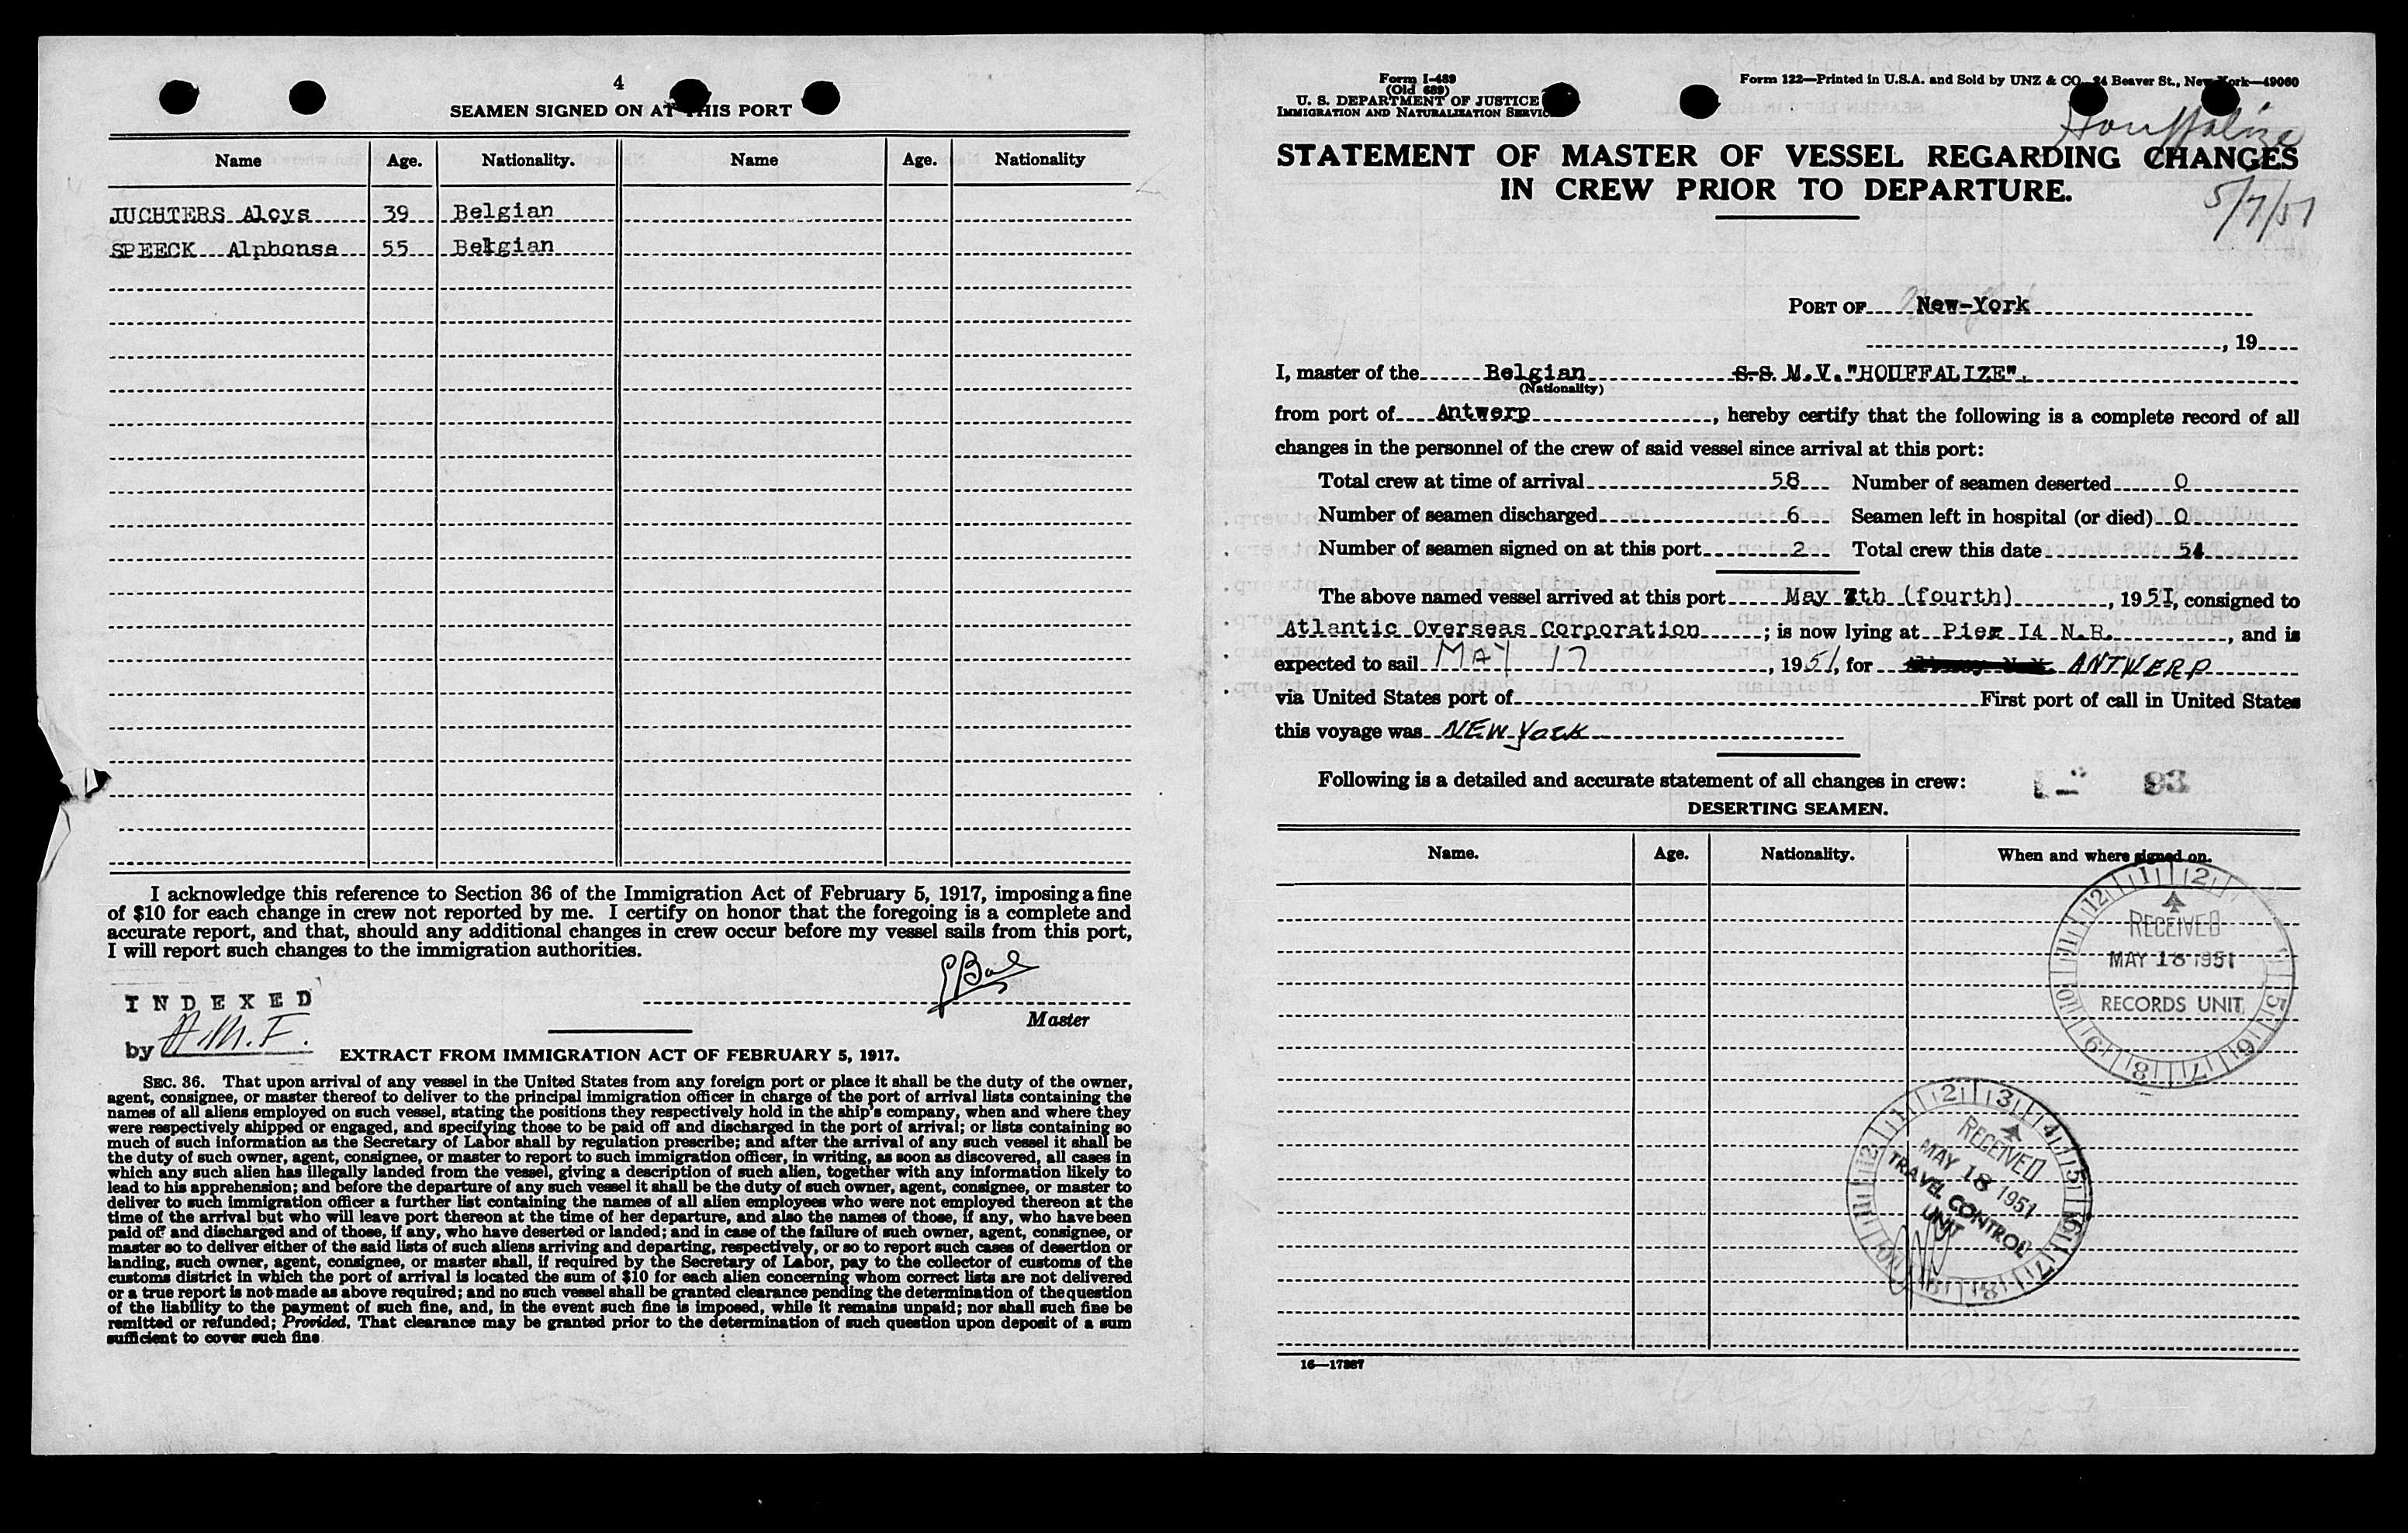 4
SEAMEN SIGNED ON AT THIS PORT
Name Age. Nationality. Name Age. Nationality
JUCHTERS Aloys 39 Belgian
SPEECK Alphonse 55 Belgian
I acknowledge this reference to Section 36 of the Immigration Act of February 5, 1917, imposing a fine
of $10 for each change in crew not reported by me. I certify on honor that the foregoing is a complete and
accurate report, and that, should any additional changes in crew occur before my vessel sails from this port,
I will report such changes to the immigration authorities.
INDEXED
by A.M.F.
Master
EXTRACT FROM IMMIGRATION ACT OF FEBRUARY 5, 1917.
SEC. 36. That upon arrival of any vessel in the United States from any foreign port or place it shall be the duty of the owner,
agent, consignee, or master thereof to deliver to the principal immigration officer in charge of the port of arrival lists containing the
names of all aliens employed on such vessel, stating the positions they respectively hold in the ship's company, when and where they
were respectively shipped or engaged, and specifying those to be paid off and discharged in the port of arrival; or lists containing so
much of such information as the Secretary of Labor shall by regulation prescribe; and after the arrival of any such vessel it shall be
the duty of such owner, agent, consignee, or master to report to such immigration officer, in writing, as soon as discovered, all cases in
which any such alien has illegally landed from the vessel, giving a description of such alien, together with any information likely to
lead to his apprehension; and before the departure of any such vessel it shall be the duty of such owner, agent, consignee, or master to
deliver to such immigration officer a further list containing the names of all alien employees who were not employed thereon at the
time of the arrival but who will leave port thereon at the time of her departure, and also the names of those, if any, who have been
paid off and discharged and of those, if any, who have deserted or landed; and in case of the failure of such owner, agent, consignee, or
master so to deliver either of the said lists of such aliens arriving and departing, respectively, or so to report such cases of desertion or
landing, such owner, agent, consignee, or master shall, if required by the Secretary of Labor, pay to the collector of customs of the
customs district in which the port of arrival is located the sum of $10 for each alien concerning whom correct lists are not delivered
or a true report is not made as above required; and no such vessel shall be granted clearance pending the determination of the question
of the liability to the payment of such fine, and, in the event such fine is imposed, while it remains unpaid; nor shall such fine be
remitted or refunded; Provided, That clearance may be granted prior to the determination of such question upon deposit of a sum
sufficient to cover such fine
Form I-489
(Old 689)
U. S. DEPARTMENT OF JUSTICE
IMMIGRATION AND NATURALIZATION SERVICE
Form 122—Printed in U.S.A. and Sold by UNZ & CO., 24 Beaver St., New York—49060
Houffalize
5/7/51
STATEMENT OF MASTER OF VESSEL REGARDING CHANGES
IN CREW PRIOR TO DEPARTURE.
PORT OF New-York
, 19
I, master of the Belgian S.S. M.V. "HOUFFALIZE".
(Nationality)
from port of Antwerp, hereby certify that the following is a complete record of all
changes in the personnel of the crew of said vessel since arrival at this port:
Total crew at time of arrival 58 Number of seamen deserted 0
Number of seamen discharged 6 Seamen left in hospital (or died) 0
Number of seamen signed on at this port 2 Total crew this date 54
The above named vessel arrived at this port May 7th (fourth), 1951, consigned to
Atlantic Overseas Corporation; is now lying at Pier I4 N.R., and is
expected to sail MAY 17, 1951, for ANTWERP
via United States port of First port of call in United States
this voyage was NEW York
Following is a detailed and accurate statement of all changes in crew:
93
DESERTING SEAMEN.
Name. Age. Nationality. When and where signed on.
RECEIVED
MAY 18 1951
RECORDS UNIT
RECEIVED
MAY 18 1951
TRAVEL CONTROL
UNIT
16—17387